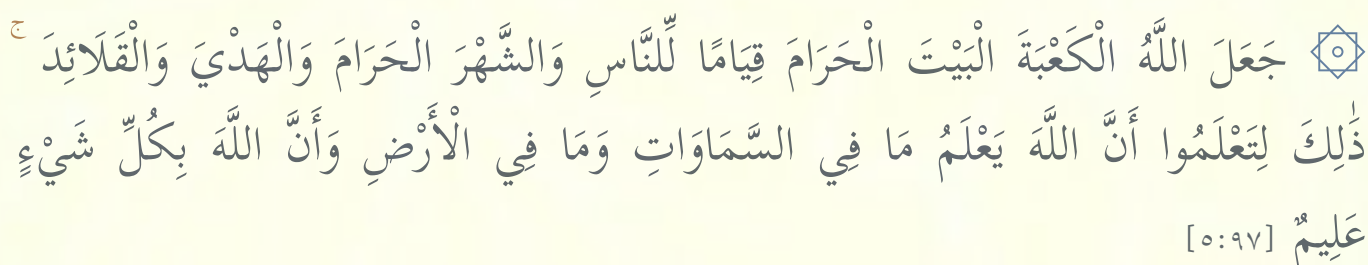 ۞ جَعَلَ اللَّهُ الْكَعْبَةَ الْبَيْتَ الْحَرَامَ قِيَامًا لِّلنَّاسِ وَالشَّهْرَ الْحَرَامَ وَالْهَدْيَ وَالْقَلَائِدَ ۚ
ذَٰلِكَ لِتَعْلَمُوا أَنَّ اللَّهَ يَعْلَمُ مَا فِي السَّمَاوَاتِ وَمَا فِي الْأَرْضِ وَأَنَّ اللَّهَ بِكُلِّ شَيْءٍ
عَلِيمٌ [٥:٩٧]